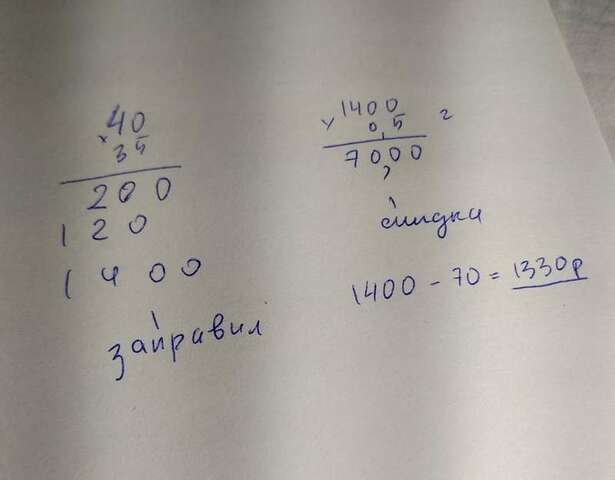 40
× 35
200
120
1400
заправил
× 1400
0,5 г
70,00
скидка
1400 - 70 = 1330р